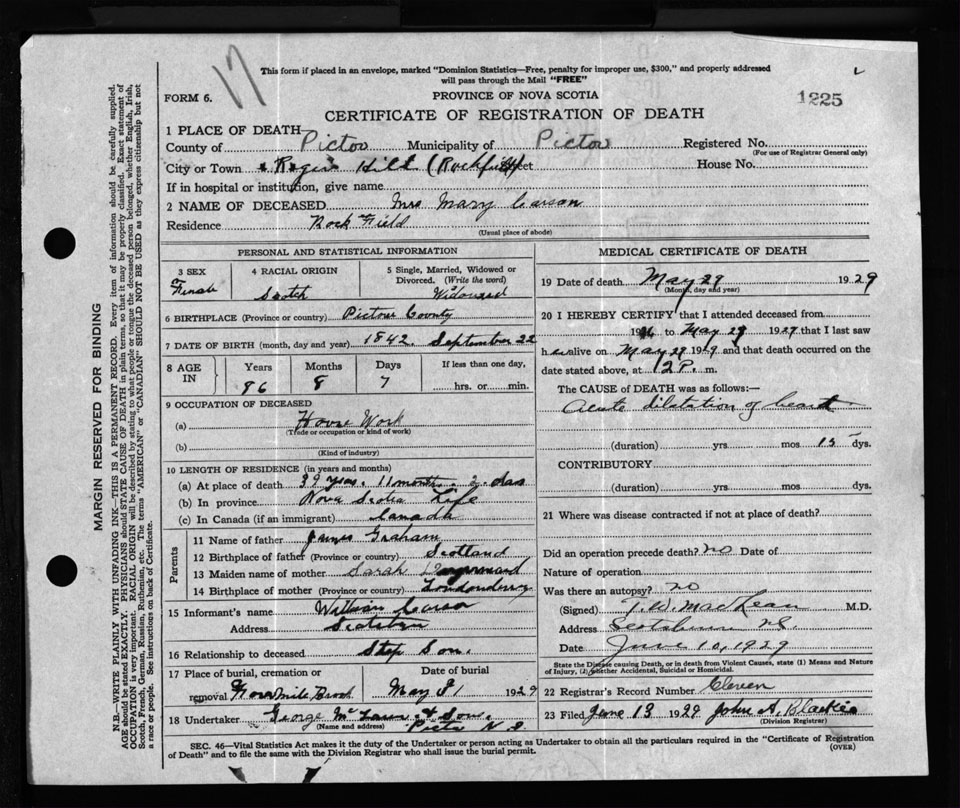 17
This form if placed in an envelope, marked "Dominion Statistics—Free, penalty for improper use, $300," and properly addressed
will pass through the Mail "FREE"
FORM 6.
PROVINCE OF NOVA SCOTIA
1225
CERTIFICATE OF REGISTRATION OF DEATH
1 PLACE OF DEATH—
County of Pictou Municipality of Pictou Registered No.
(For use of Registrar General only)
City or Town Hill (Rockfield) Street House No.
If in hospital or institution, give name
2 NAME OF DECEASED Mrs Mary Carson
Residence Rock Field
(Usual place of abode)
PERSONAL AND STATISTICAL INFORMATION
3 SEX
Female
4 RACIAL ORIGIN
Scotch
5 Single, Married, Widowed or
Divorced. (Write the word)
Widowed
6 BIRTHPLACE (Province or country) Pictou County
7 DATE OF BIRTH (month, day and year) 1842 September 22
8 AGE
IN
Years
86
Months
8
Days
7
If less than one day,
hrs. or min.
9 OCCUPATION OF DECEASED
(a) House Work
(Trade or occupation or kind of work)
(b)
(Kind of industry)
10 LENGTH OF RESIDENCE (in years and months)
(a) At place of death 39 years. 11 months. 2 days
(b) In province Nova Scotia Life
(c) In Canada (if an immigrant) Canada
Parents
11 Name of father James Graham
12 Birthplace of father (Province or country) Scotland
13 Maiden name of mother Sarah
14 Birthplace of mother (Province or country) Londonderry
15 Informant's name William Carson
Address Scotsburn
16 Relationship to deceased Step Son.
17 Place of burial, cremation or
removal Four Mile Brook
Date of burial
May 31 1929
18 Undertaker George & Sons.
(Name and address) Pictou N.S.
MEDICAL CERTIFICATE OF DEATH
19 Date of death May 29 1929
(Month, day and year)
20 I HEREBY CERTIFY that I attended deceased from
19 to May 29 1929 that I last saw
her alive on May 29 1929 and that death occurred on the
date stated above, at 12 P. m.
The CAUSE OF DEATH was as follows:—
Acute dilatation of heart
(duration) yrs mos 15 dys.
CONTRIBUTORY
(duration) yrs mos dys.
21 Where was disease contracted if not at place of death?
Did an operation precede death? no Date of
Nature of operation
Was there an autopsy? no
(Signed) T. W. MacLean M.D.
Address Scotsburn N.S.
Date June 10, 1929
State the Disease causing Death, or in death from Violent Causes, state (1) Means and Nature
of Injury, (2) whether Accidental, Suicidal or Homicidal.
22 Registrar's Record Number Eleven
23 Filed June 13 1929 John A. Blaikie
(Division Registrar)
SEC. 46—Vital Statistics Act makes it the duty of the Undertaker or person acting as Undertaker to obtain all the particulars required in the "Certificate of Registration
of Death" and to file the same with the Division Registrar who shall issue the burial permit.
(OVER)
MARGIN RESERVED FOR BINDING
N.B.—WRITE PLAINLY WITH UNFADING INK—THIS IS A PERMANENT RECORD. Every item of information should be carefully supplied.
AGE should be stated EXACTLY. PHYSICIANS should STATE CAUSE OF DEATH in plain terms, so that it may be properly classified. Exact statement of
OCCUPATION is very important. RACIAL ORIGIN will be described by stating to what people or tongue the deceased person belonged, whether English, Irish,
Scotch, French, German, Russian, Ruthenian, etc. The terms "AMERICAN" or "CANADIAN" SHOULD NOT BE USED as they express citizenship but not
a race or people. See instructions on back of Certificate.